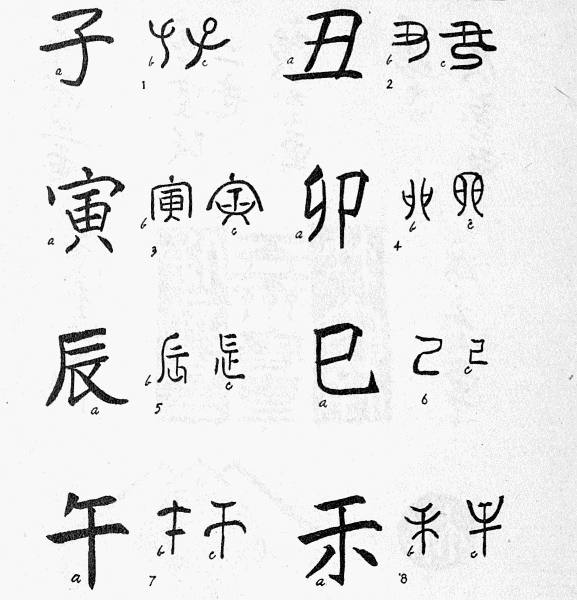 子 a b c 丑 a b c
1 2
寅 a b c 卯 a b c
3 4
辰 a b c 巳 a b c
5 6
午 a b c 未 a b c
7 8